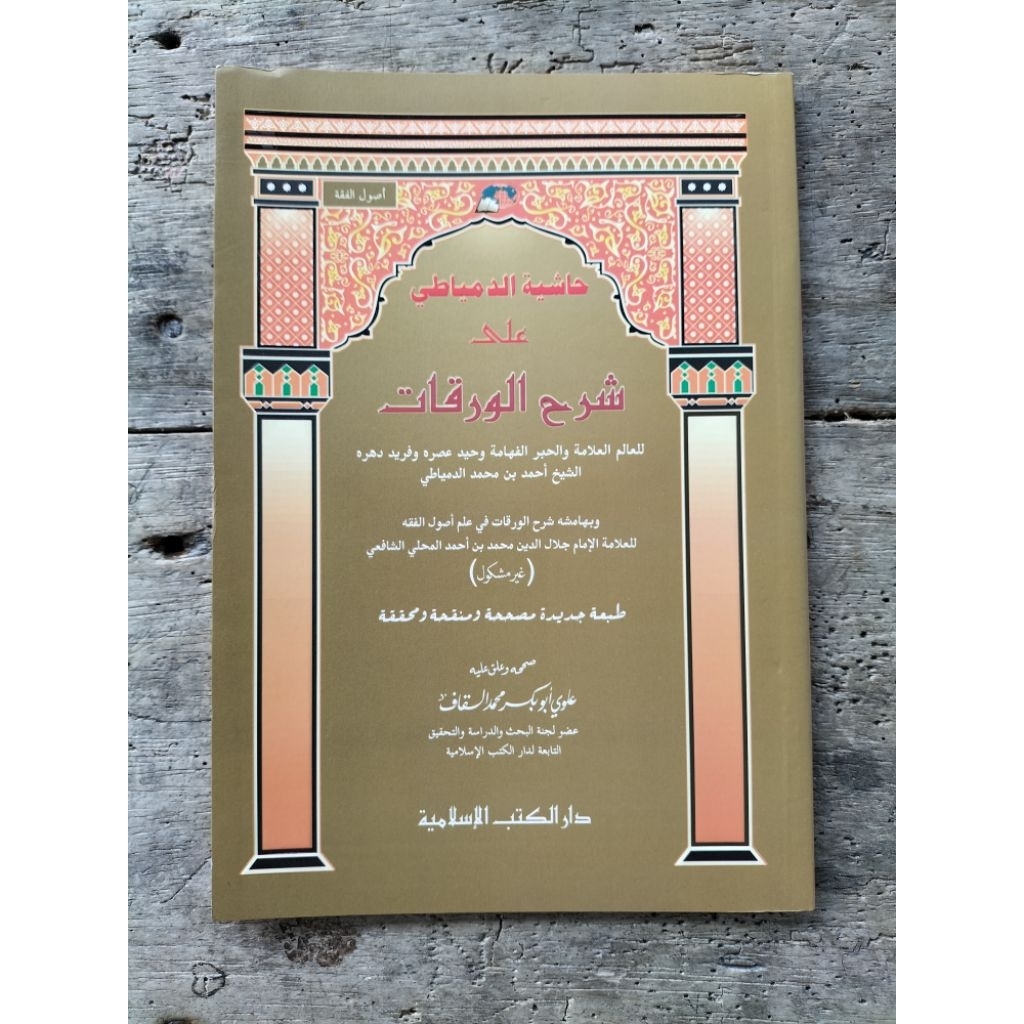 أصول الفقة
حاشية الدمياطي
على
شرح الورقات
للعالم العلامة والحبر الفهامة وحيد عصره وفريد دهره
الشيخ أحمد بن محمد الدمياطي
وبهامشه شرح الورقات في علم أصول الفقه
للعلامة الإمام جلال الدين محمد بن أحمد المحلي الشافعي
(غير مشكول)
طبعة جديدة مصححة ومنقحة ومحققة
صححه وعلق عليه
علوي أبو بكر محمد السقاف
عضو لجنة البحث والدراسة والتحقيق
التابعة لدار الكتب الإسلامية
دار الكتب الإسلامية